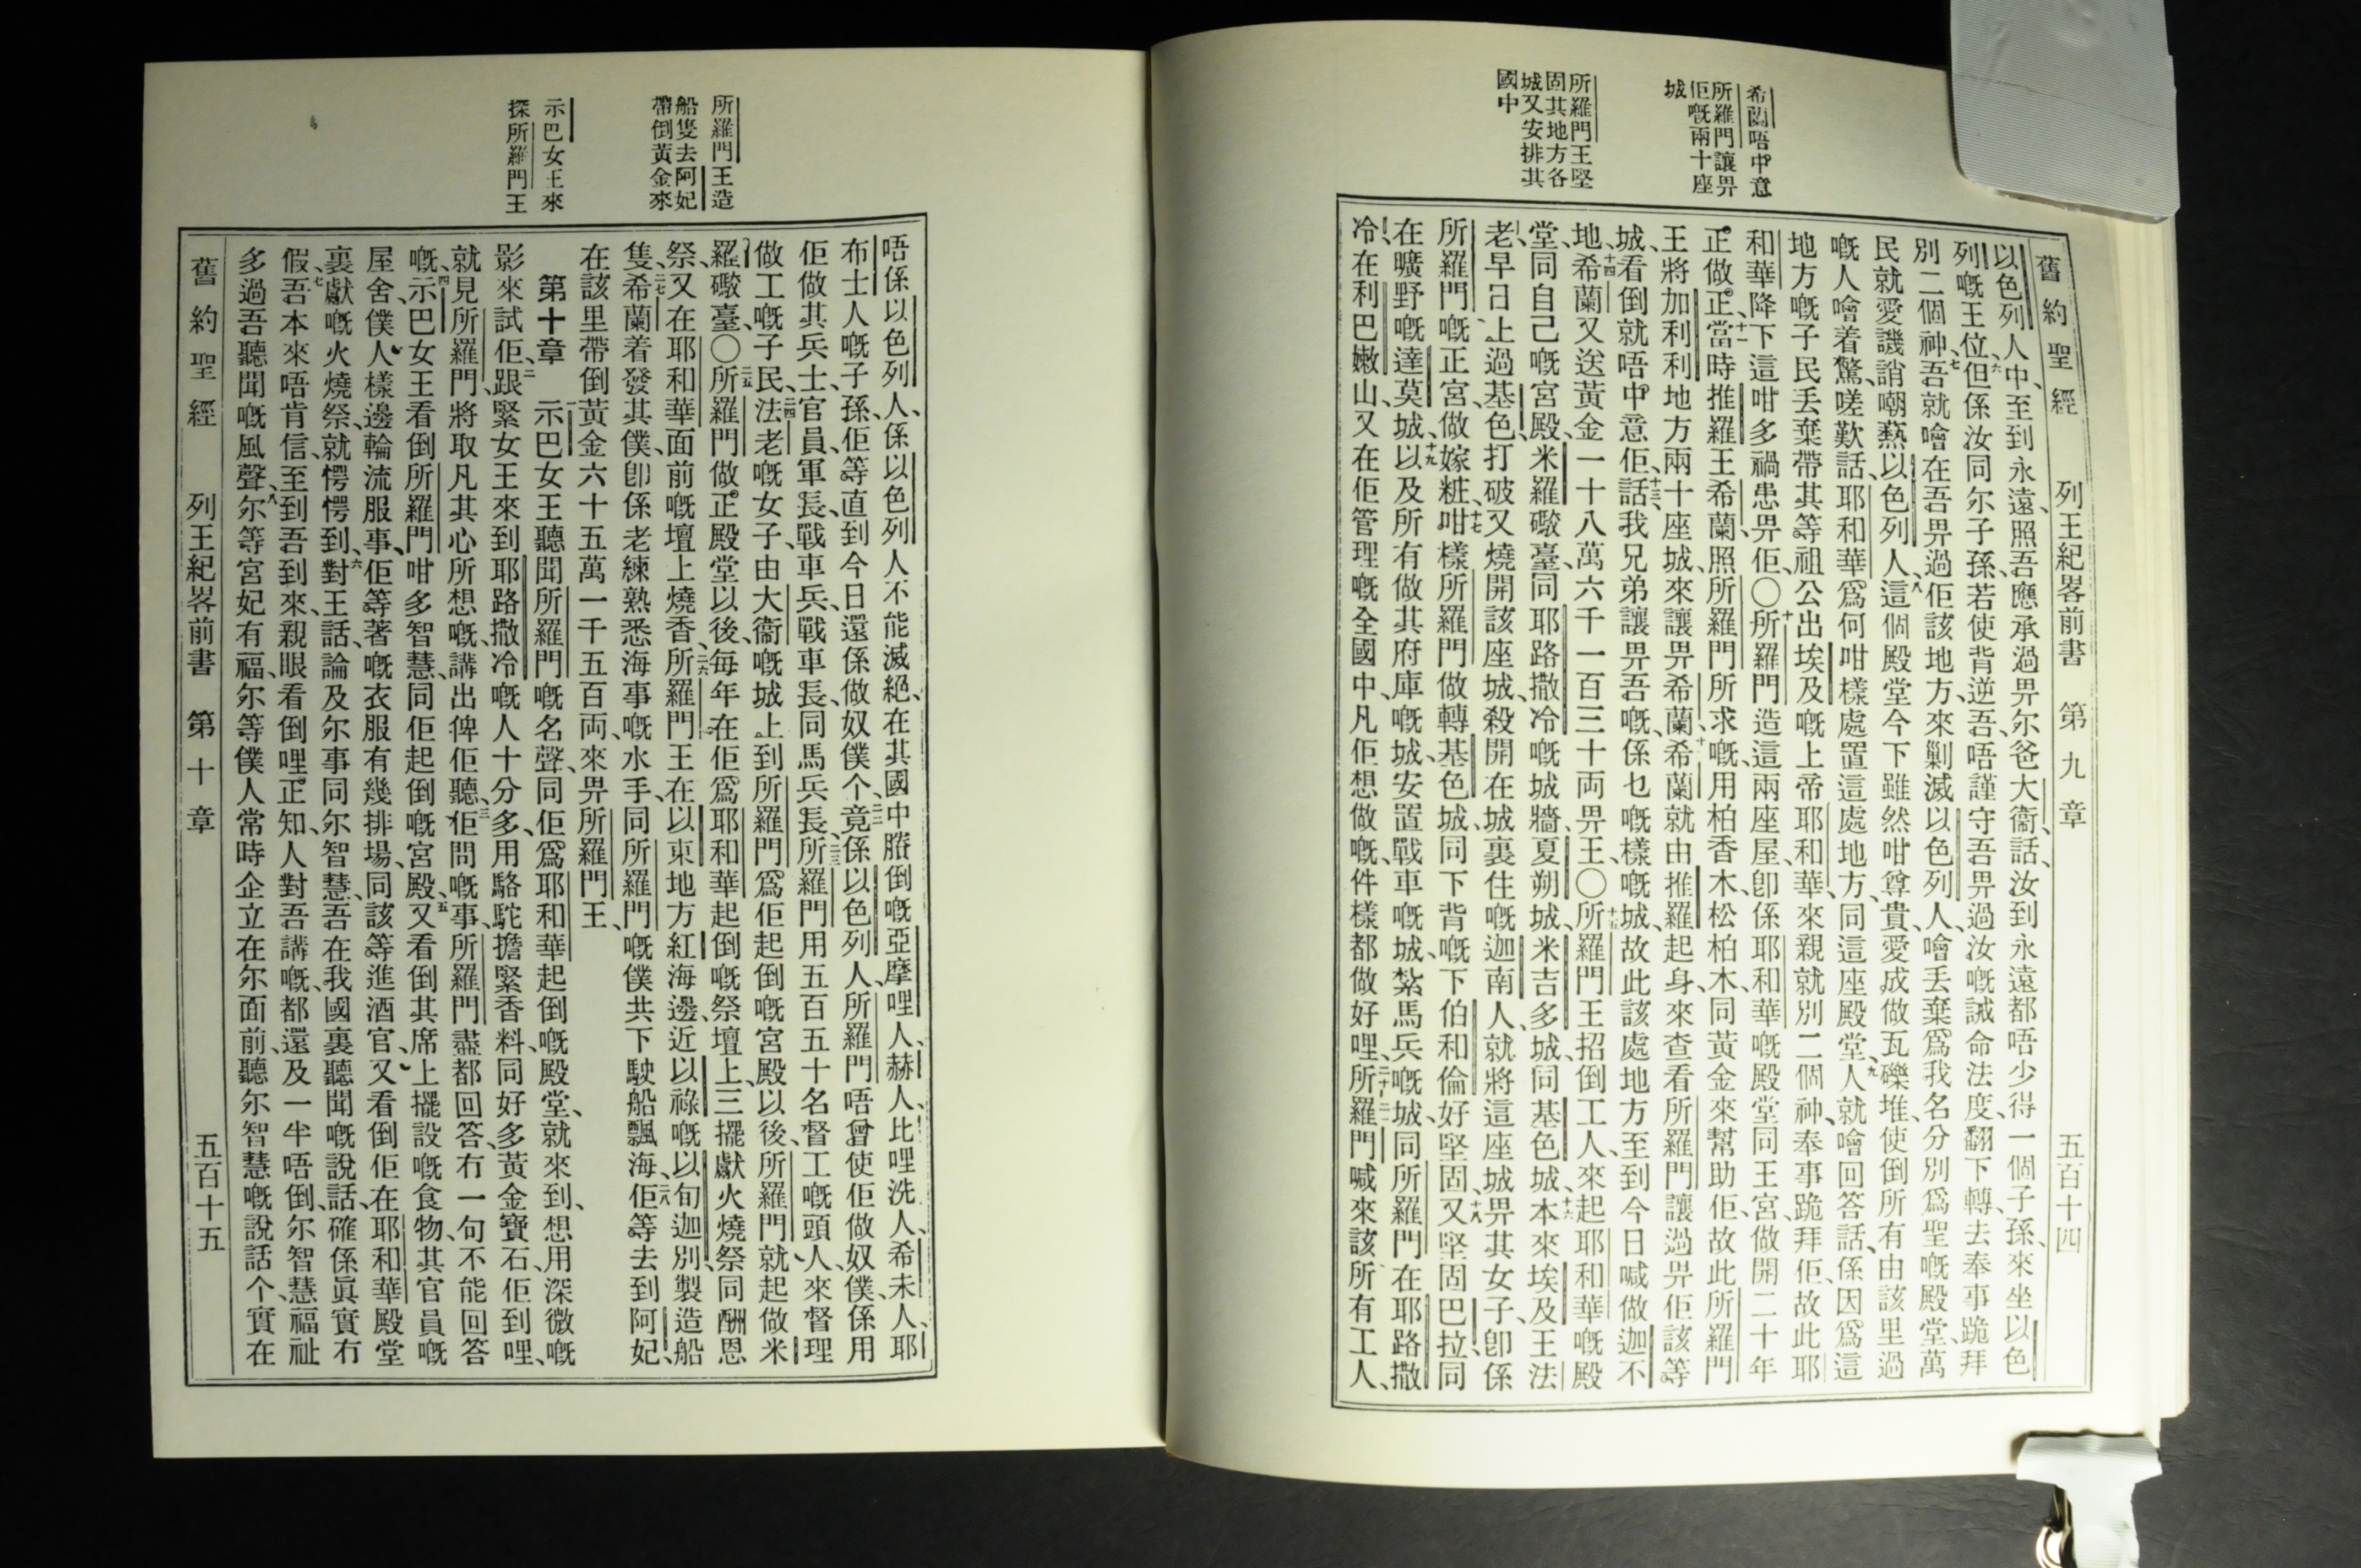 舊約聖經 列王紀畧前書 第九章 五百十四
希蘭唔中意
所羅門讓畀
佢嘅兩十座
城
所羅門王堅
固其地方各
城又安排其
國中
以色列人中、至到永遠、照吾應承過畀尔爸大衞話、汝到永遠都唔少得一個子孫、來坐以色
列嘅王位、六但係汝同尔子孫、若使背逆吾、唔謹守吾畀過汝嘅誡命法度、翻下轉、去奉事跪拜
別二個神、七吾就噲在吾畀過佢該地方、來剿滅以色列人、噲丟棄爲我名分別爲聖嘅殿堂、萬
民就愛譏誚嘲𤍠以色列人、八這個殿堂今下雖然咁尊貴、愛成做瓦礫堆、使倒所有由該里過
嘅人噲着驚、嗟歎話、耶和華爲何咁樣處置這處地方、同這座殿堂、九人就噲回答話、係因爲這
地方嘅子民丟棄帶其等祖公出埃及嘅上帝耶和華、來親就別二個神、奉事跪拜佢、故此耶
和華降下這咁多禍患畀佢、〇十所羅門造這兩座屋、卽係耶和華嘅殿堂同王宮、做開二十年
正做正、十一當時推羅王希蘭、照所羅門所求嘅、用柏香木、松柏木、同黃金來幫助佢、故此所羅門
王將加利利地方兩十座城、來讓畀希蘭、十二希蘭就由推羅起身、來查看所羅門讓過畀佢該等
城、看倒就唔中意佢、十三話我兄弟讓畀吾嘅、係乜嘅樣嘅城、故此該處地方至到今日喊做迦不
地、十四希蘭又送黃金一十八萬六千一百三十両畀王、〇十五所羅門王招倒工人、來起耶和華嘅殿
堂、同自己嘅宮殿、米羅礮臺、同耶路撒冷嘅城牆、夏朔城、米吉多城、同基色城、十六本來埃及王法
老、早日上過基色、打破又燒開該座城、殺開在城裏住嘅迦南人、就將這座城畀其女子、卽係
所羅門嘅正宮、做嫁粧、十七咁樣所羅門做轉基色城、同下背嘅下伯和倫好堅固、十八又堅固巴拉、同
在曠野嘅達莫城、十九以及所有做其府庫嘅城、安置戰車嘅城、紮馬兵嘅城、同所羅門在耶路撒
冷、在利巴嫩山、又在佢管理嘅全國中、凡佢想做嘅、件樣都做好哩、二十所羅門喊來該所有工人、
所羅門王造
船隻去阿妃
帶倒黃金來
示巴女王來
探所羅門王
唔係以色列人、係以色列人不能滅絕、在其國中賸倒嘅亞摩哩人、赫人、比哩洗人、希未人、耶
布士人嘅子孫、佢等直到今日還係做奴僕个、二二竟係以色列人、所羅門唔曾使佢做奴僕、係用
佢做其兵士、官員、軍長、戰車兵、戰車長、同馬兵長、二三所羅門用五百五十名督工嘅頭人、來督理
做工嘅子民、二四法老嘅女子、由大衞嘅城上到所羅門爲佢起倒嘅宮殿以後、所羅門就起做米
羅礮臺、〇二五所羅門做正殿堂以後、每年在佢爲耶和華起倒嘅祭壇上、三擺獻火燒祭同酬恩
祭、又在耶和華面前嘅壇上燒香、二六所羅門王在以東地方紅海邊、近以祿嘅以旬迦別製造船
隻、二七希蘭着發其僕、卽係老練熟悉海事嘅水手、同所羅門嘅僕共下駛船飄海、二八佢等去到阿妃、
在該里帶倒黃金六十五萬一千五百両、來畀所羅門王、
第十章 一示巴女王聽聞所羅門嘅名聲、同佢爲耶和華起倒嘅殿堂、就來到、想用深微嘅
影來試佢、二跟緊女王來到耶路撒冷嘅人十分多、用駱駝擔緊香料、同好多黃金寶石、佢到哩、
就見所羅門、將取凡其心所想嘅、講出俾佢聽、三佢問嘅事、所羅門盡都回答、冇一句不能回答
嘅、四示巴女王看倒所羅門咁多智慧、同佢起倒嘅宮殿、五又看倒其席上擺設嘅食物、其官員嘅
屋舍、僕人樣邊輪流服事、佢等著嘅衣服有幾排場、同該等進酒官、又看倒佢在耶和華殿堂
裏獻嘅火燒祭、就愕愕到、六對王話、論及尔事同尔智慧、吾在我國裏聽聞嘅說話、確係眞實冇
假、七吾本來唔肯信、至到吾到來、親眼看倒哩正知、人對吾講嘅、都還及一半唔倒、尔智慧福祉
多過吾聽聞嘅風聲、八尔等宮妃有福、尔等僕人常時企立在尔面前、聽尔智慧嘅說話个、實在
舊約聖經 列王紀畧前書 第十章 五百十五